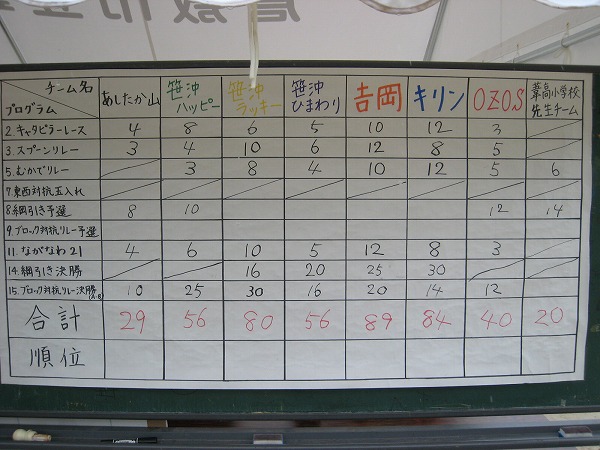 倉敷市立
チーム名
プログラム
あしたか山
笹沖
ハッピー
笹沖
ラッキー
笹沖
ひまわり
吉岡
キリン
OZOS
葦高小学校
先生チーム
2.キャタピラーレース 4 8 6 5 10 12 3
3.スプーンリレー 3 4 10 6 12 8 5
5.むかでリレー 3 8 4 10 12 5 6
7.東西対抗玉入れ
8.綱引き予選 8 10 12 14
9.ブロック対抗リレー予選
11.ながなわ21 4 6 10 5 12 8 3
14.綱引き決勝 16 20 25 30
15.ブロック対抗リレー決勝 10 25 30 16 20 14 12
合計 29 56 80 56 89 84 40 20
順位